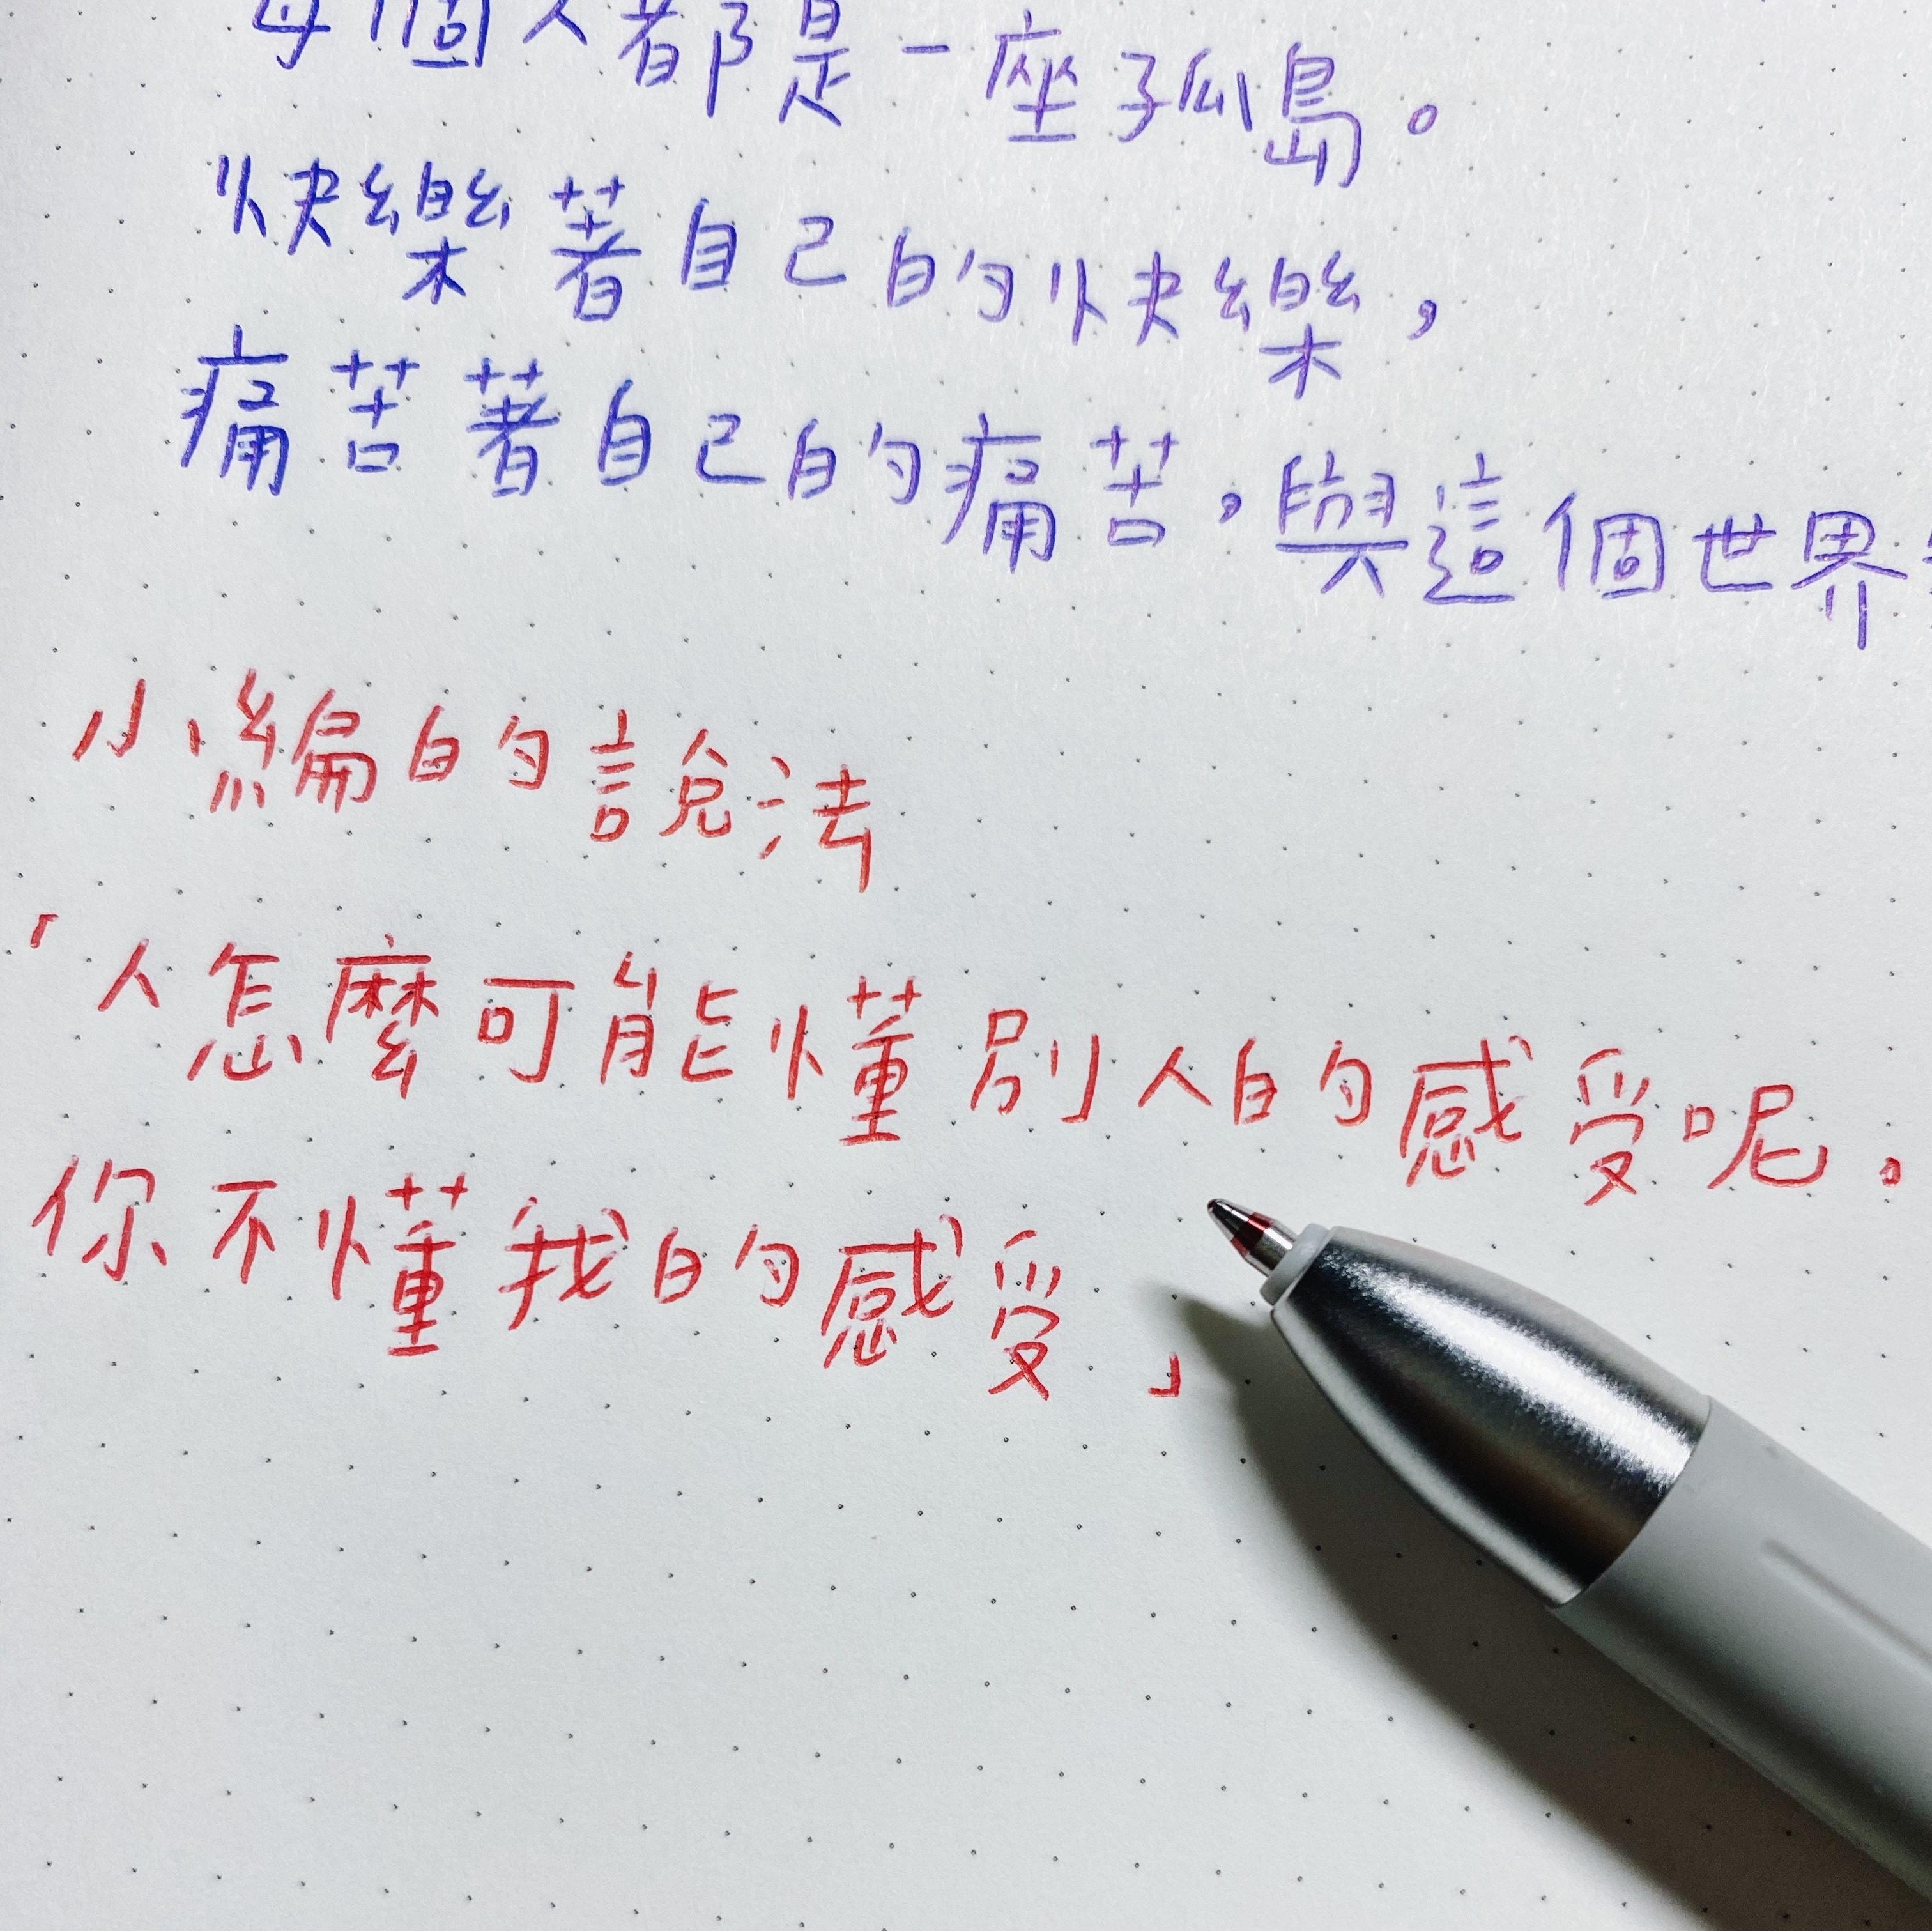 每個人都是一座孤島。
快樂著自己的快樂，
痛苦著自己的痛苦，與這個世界
小編的說法
「人怎麼可能懂別人的感受呢。
你不懂我的感受」